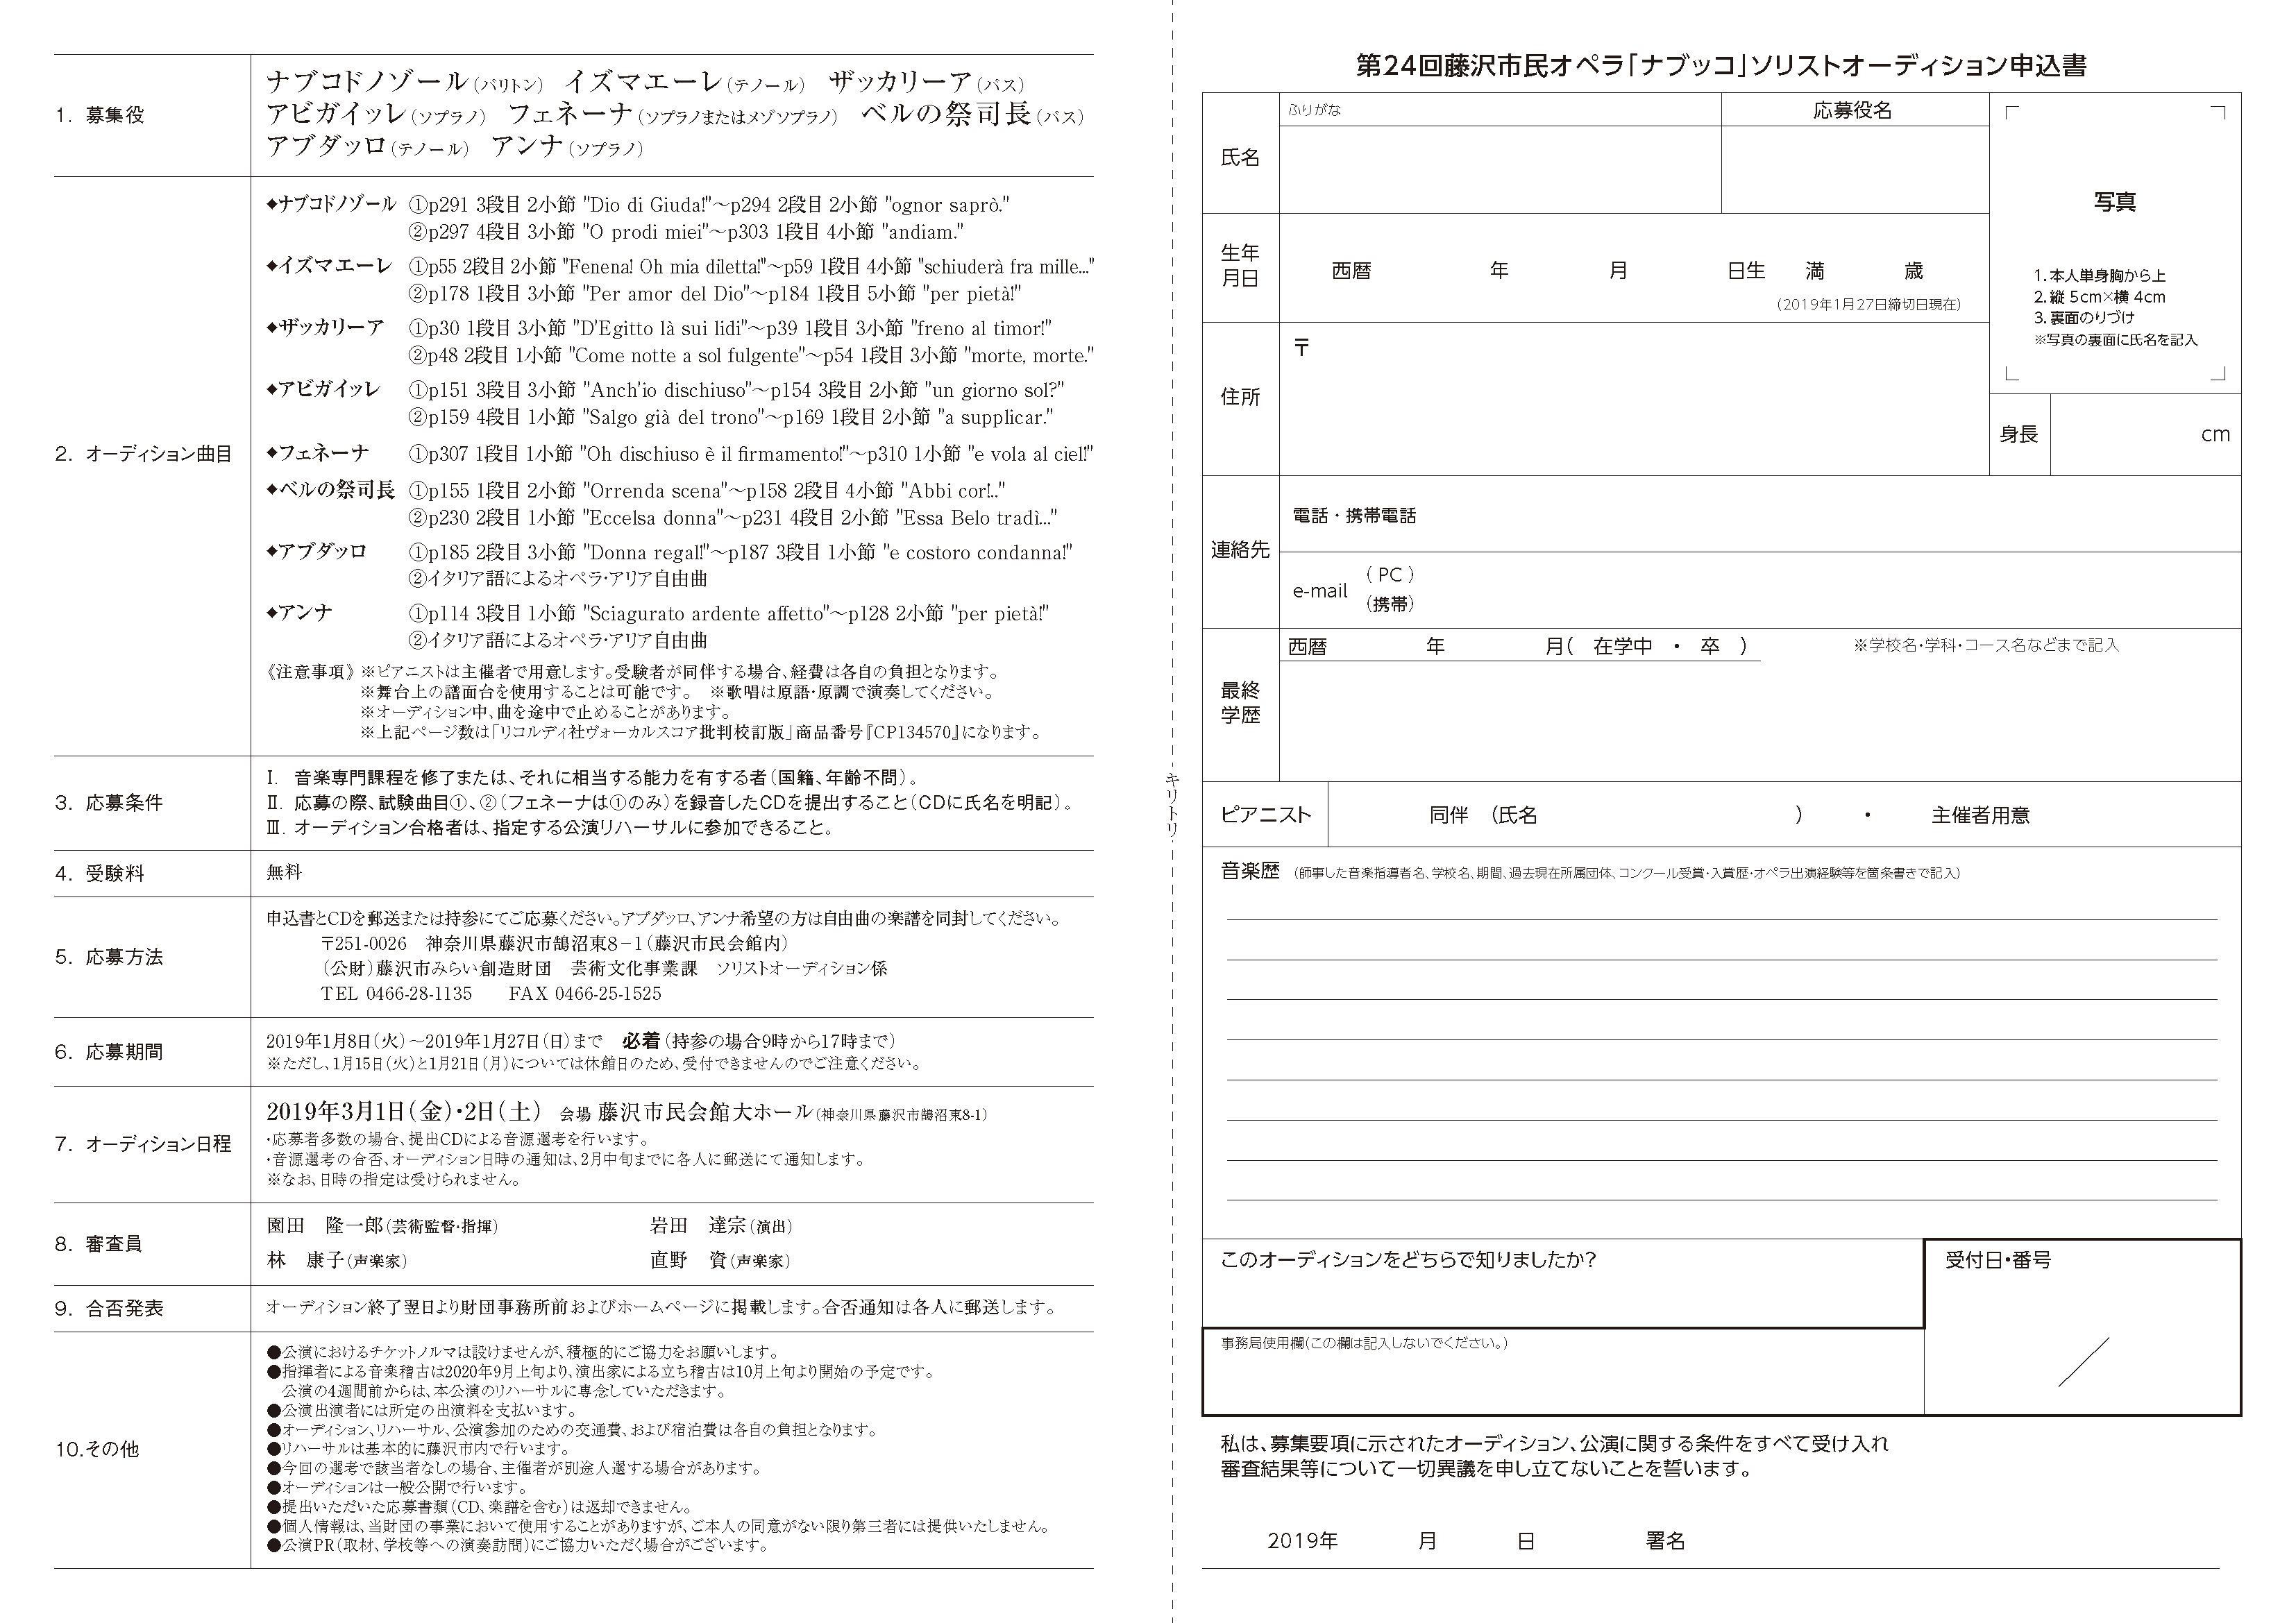 1. 募集役
ナブコドノゾール(バリトン)　イズマエーレ(テノール)　ザッカリーア(バス)
アビガイッレ(ソプラノ)　フェネーナ(ソプラノまたはメゾソプラノ)　ベルの祭司長(バス)
アブダッロ(テノール)　アンナ(ソプラノ)
2. オーディション曲目
◆ナブコドノゾール ①p291 3段目 2小節 "Dio di Giuda!"～p294 2段目 2小節 "ognor saprò."
②p297 4段目 3小節 "O prodi miei"～p303 1段目 4小節 "andiam."
◆イズマエーレ ①p55 2段目 2小節 "Fenena! Oh mia diletta!"～p59 1段目 4小節 "schiuderà fra mille..."
②p178 1段目 3小節 "Per amor del Dio"～p184 1段目 5小節 "per pietà!"
◆ザッカリーア ①p30 1段目 3小節 "D'Egitto là sui lidi"～p39 1段目 3小節 "freno al timor!"
②p48 2段目 1小節 "Come notte a sol fulgente"～p54 1段目 3小節 "morte, morte."
◆アビガイッレ ①p151 3段目 3小節 "Anch'io dischiuso"～p154 3段目 2小節 "un giorno sol?"
②p159 4段目 1小節 "Salgo già del trono"～p169 1段目 2小節 "a supplicar."
◆フェネーナ ①p307 1段目 1小節 "Oh dischiuso è il firmamento!"～p310 1小節 "e vola al ciel!"
◆ベルの祭司長 ①p155 1段目 2小節 "Orrenda scena"～p158 2段目 4小節 "Abbi cor!.."
②p230 2段目 1小節 "Eccelsa donna"～p231 4段目 2小節 "Essa Belo tradì..."
◆アブダッロ ①p185 2段目 3小節 "Donna regal!"～p187 3段目 1小節 "e costoro condanna!"
②イタリア語によるオペラ・アリア自由曲
◆アンナ ①p114 3段目 1小節 "Sciagurato ardente affetto"～p128 2小節 "per pietà!"
②イタリア語によるオペラ・アリア自由曲
《注意事項》※ピアニストは主催者で用意します。受験者が同伴する場合、経費は各自の負担となります。
※舞台上の譜面台を使用することは可能です。　※歌唱は原語・原調で演奏してください。
※オーディション中、曲を途中で止めることがあります。
※上記ページ数は「リコルディ社ヴォーカルスコア批判校訂版」商品番号『CP134570』になります。
3. 応募条件
Ⅰ. 音楽専門課程を修了または、それに相当する能力を有する者(国籍、年齢不問)。
Ⅱ. 応募の際、試験曲目①、②(フェネーナは①のみ)を録音したCDを提出すること(CDに氏名を明記)。
Ⅲ. オーディション合格者は、指定する公演リハーサルに参加できること。
4. 受験料
無料
5. 応募方法
申込書とCDを郵送または持参にてご応募ください。アブダッロ、アンナ希望の方は自由曲の楽譜を同封してください。
〒251-0026　神奈川県藤沢市鵠沼東8-1(藤沢市民会館内)
(公財)藤沢市みらい創造財団　芸術文化事業課　ソリストオーディション係
TEL 0466-28-1135　FAX 0466-25-1525
6. 応募期間
2019年1月8日(火)～2019年1月27日(日)まで　必着(持参の場合9時から17時まで)
※ただし、1月15日(火)と1月21日(月)については休館日のため、受付できませんのでご注意ください。
7. オーディション日程
2019年3月1日(金)・2日(土)　会場 藤沢市民会館大ホール(神奈川県藤沢市鵠沼東8-1)
・応募者多数の場合、提出CDによる音源選考を行います。
・音源選考の合否、オーディション日時の通知は、2月中旬までに各人に郵送にて通知します。
※なお、日時の指定は受けられません。
8. 審査員
園田　隆一郎(芸術監督・指揮)　岩田　達宗(演出)
林　康子(声楽家)　直野　資(声楽家)
9. 合否発表
オーディション終了翌日より財団事務所前およびホームページに掲載します。合否通知は各人に郵送します。
10.その他
●公演におけるチケットノルマは設けませんが、積極的にご協力をお願いします。
●指揮者による音楽稽古は2020年9月上旬より、演出家による立ち稽古は10月上旬より開始の予定です。
公演の4週間前からは、本公演のリハーサルに専念していただきます。
●公演出演者には所定の出演料を支払います。
●オーディション、リハーサル、公演参加のための交通費、および宿泊費は各自の負担となります。
●リハーサルは基本的に藤沢市内で行います。
●今回の選考で該当者なしの場合、主催者が別途人選する場合があります。
●オーディションは一般公開で行います。
●提出いただいた応募書類(CD、楽譜を含む)は返却できません。
●個人情報は、当財団の事業において使用することがありますが、ご本人の同意がない限り第三者には提供いたしません。
●公演PR(取材、学校等への演奏訪問)にご協力いただく場合がございます。
キリトリ
第24回藤沢市民オペラ「ナブッコ」ソリストオーディション申込書
ふりがな
応募役名
氏名
写真
1. 本人単身胸から上
2. 縦 5cm×横 4cm
3. 裏面のりづけ
※写真の裏面に氏名を記入
生年
月日
西暦　年　月　日生　満　歳
(2019年1月27日締切日現在)
住所
〒
身長　cm
連絡先
電話・携帯電話
e-mail
( PC )
(携帯)
最終
学歴
西暦　年　月(　在学中　・　卒　)　※学校名・学科・コース名などまで記入
ピアニスト　同伴　(氏名　)　・　主催者用意
音楽歴　(師事した音楽指導者名、学校名、期間、過去現在所属団体、コンクール受賞・入賞歴・オペラ出演経験等を箇条書きで記入)
このオーディションをどちらで知りましたか?
受付日・番号
事務局使用欄(この欄は記入しないでください。)
私は、募集要項に示されたオーディション、公演に関する条件をすべて受け入れ
審査結果等について一切異議を申し立てないことを誓います。
2019年　月　日　署名